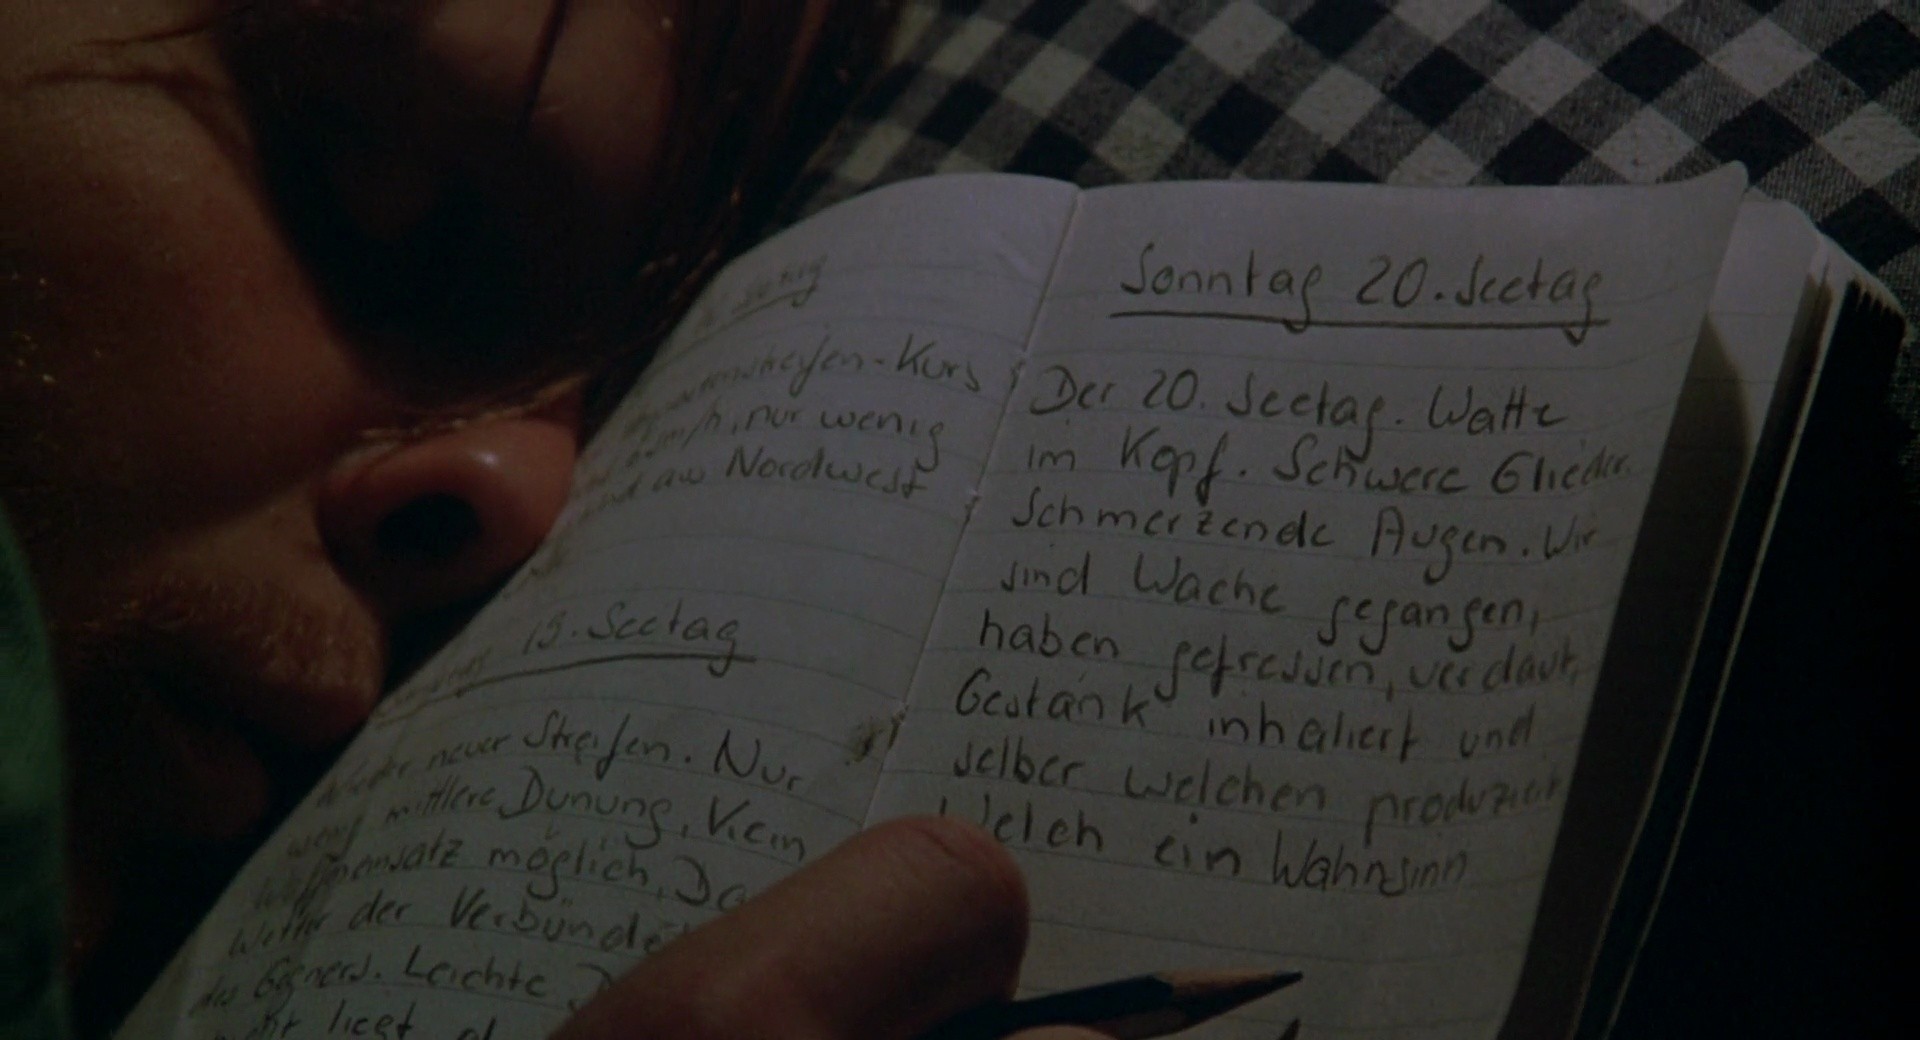 streifen-Kurs
nur wenig
aus Nordwest
19. Seetag
neuer Streifen. Nur
wenig mittlere Dünung, Kein
möglich. Da
Wetter der Verbünde
des Gegners. Leichte
liegt
Sonntag 20. Seetag
Der 20. Seetag. Watte
im Kopf. Schwere Glieder.
Schmerzende Augen. Wir
sind Wache gegangen,
haben gefressen, verdaut,
Gestank inhaliert und
selber welchen produziert
Welch ein Wahnsinn